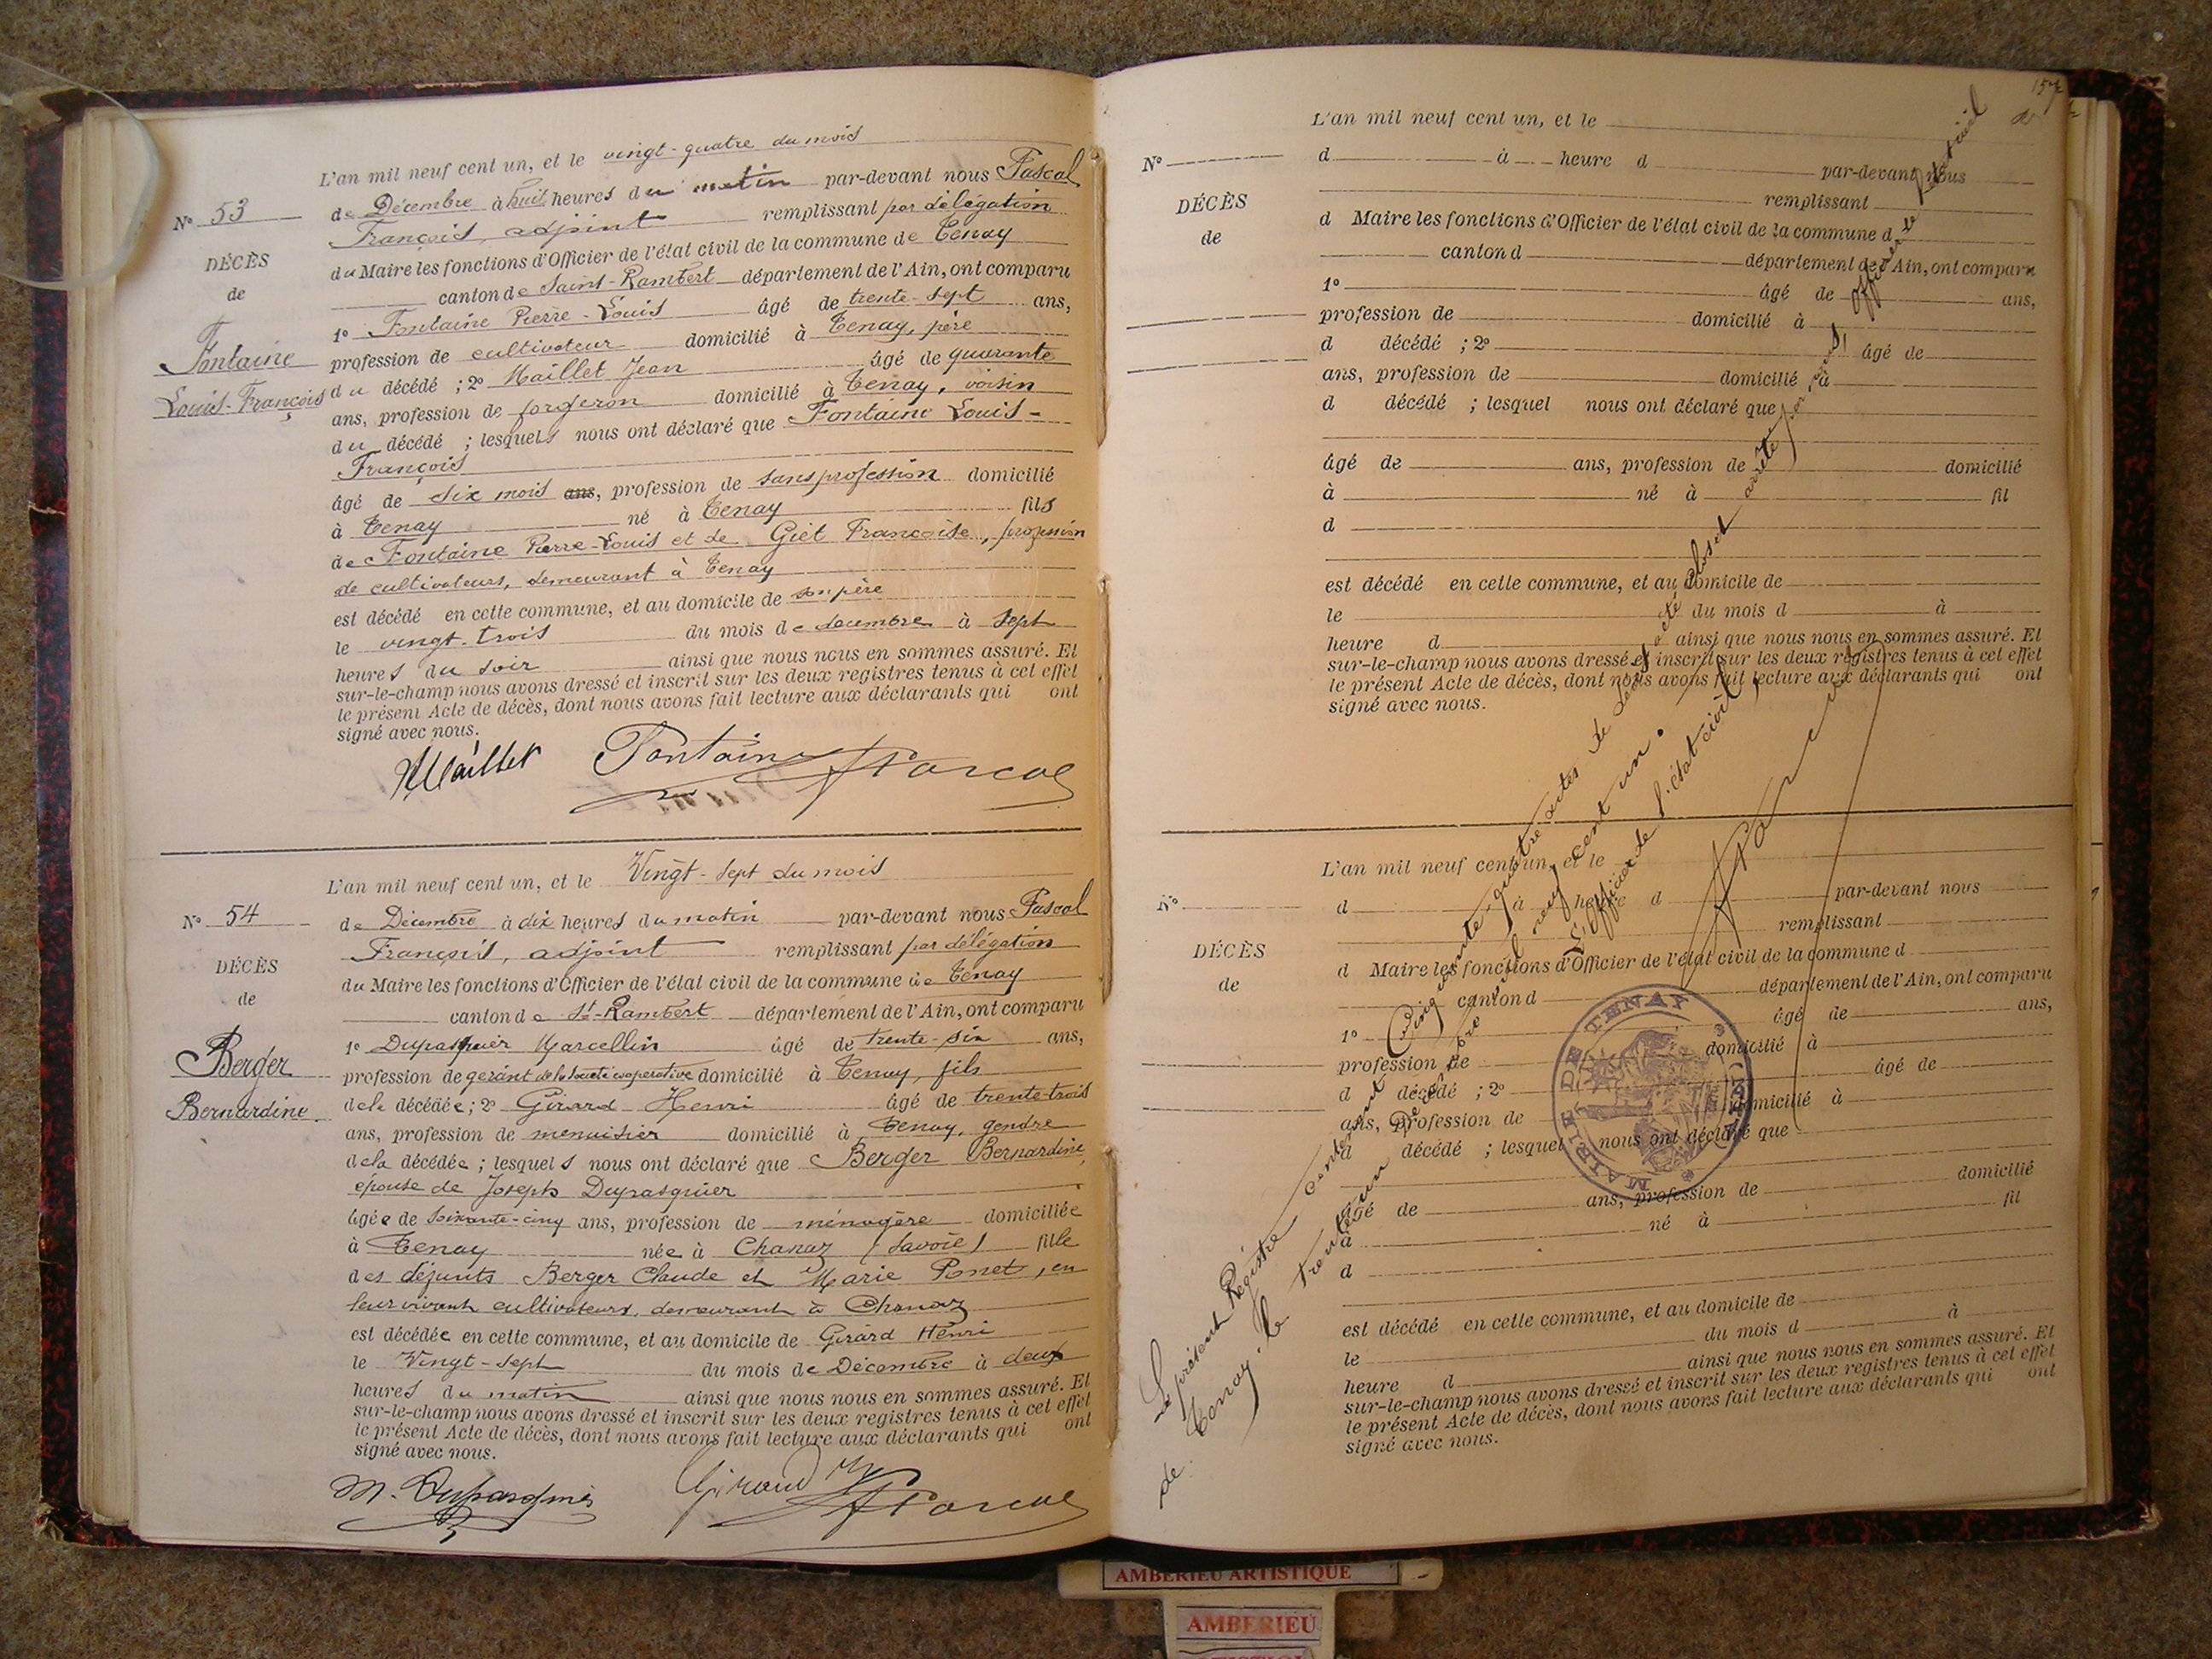 L'an mil neuf cent un, et le vingt-quatre du mois
N° 53
de Décembre à huit heures du matin par-devant nous Pascal
François, adjoint remplissant par délégation
DÉCÈS
du Maire les fonctions d'Officier de l'état civil de la commune de Tenay
de
canton de Saint-Rambert département de l'Ain, ont comparu
1° Fontaine Pierre-Louis âgé de trente-sept ans,
Fontaine
profession de cultivateur domicilié à Tenay, père
Louis-François
du décédé ; 2° Maillet Jean âgé de quarante
ans, profession de forgeron domicilié à Tenay, voisin
du décédé ; lesquels nous ont déclaré que Fontaine Louis-
François
âgé de dix mois ans, profession de sans profession domicilié
à Tenay né à Tenay fils
de Fontaine Pierre-Louis et de Giet Françoise, profession
de cultivateurs, demeurant à Tenay
est décédé en cette commune, et au domicile de son père
le vingt-trois du mois de décembre à sept
heures du soir ainsi que nous nous en sommes assuré. Et
sur-le-champ nous avons dressé et inscrit sur les deux registres tenus à cet effet
le présent Acte de décès, dont nous avons fait lecture aux déclarants qui ont
signé avec nous.
Maillet Fontaine Pascal
L'an mil neuf cent un, et le Vingt-sept du mois
N° 54
de Décembre à dix heures du matin par-devant nous Pascal
François, adjoint remplissant par délégation
DÉCÈS
du Maire les fonctions d'Officier de l'état civil de la commune de Tenay
de
canton de St-Rambert département de l'Ain, ont comparu
1° Dupasquier Marcellin âgé de trente-six ans,
Berger
profession de gérant de la société coopérative domicilié à Tenay, fils
Bernardine
de la décédée ; 2° Girard Henri âgé de trente-trois
ans, profession de menuisier domicilié à Tenay, gendre
de la décédée ; lesquels nous ont déclaré que Berger Bernardine,
épouse de Joseph Dupasquier
âgée de soixante-cinq ans, profession de ménagère domiciliée
à Tenay née à Chanaz (Savoie) fille
des défunts Berger Claude et Marie Ponet, en
leur vivant cultivateurs, demeurant à Chanaz
est décédée en cette commune, et au domicile de Girard Henri
le Vingt-sept du mois de Décembre à deux
heures du matin ainsi que nous nous en sommes assuré. Et
sur-le-champ nous avons dressé et inscrit sur les deux registres tenus à cet effet
le présent Acte de décès, dont nous avons fait lecture aux déclarants qui ont
signé avec nous.
M. Dupasquier Girard Hy Pascal
157
L'an mil neuf cent un, et le
N°
d à heure d par-devant nous
remplissant
DÉCÈS
d Maire les fonctions d'Officier de l'état civil de la commune d
de
canton d département de l'Ain, ont comparu
1° âgé de ans,
profession de domicilié à
d décédé ; 2° âgé de
ans, profession de domicilié à
d décédé ; lesquel nous ont déclaré que
âgé de ans, profession de domicilié
à né à fil
d
est décédé en cette commune, et au domicile de
le du mois d à
heure d ainsi que nous nous en sommes assuré. Et
sur-le-champ nous avons dressé et inscrit sur les deux registres tenus à cet effet
le présent Acte de décès, dont nous avons fait lecture aux déclarants qui ont
signé avec nous.
L'an mil neuf cent un, et le
N°
d à heure d par-devant nous
remplissant
DÉCÈS
d Maire les fonctions d'Officier de l'état civil de la commune d
de
canton d département de l'Ain, ont comparu
1° âgé de ans,
profession de domicilié à
d décédé ; 2° âgé de
ans, profession de domicilié à
d décédé ; lesquel nous ont déclaré que
âgé de ans, profession de domicilié
à né à fil
d
est décédé en cette commune, et au domicile de
le du mois d à
heure d ainsi que nous nous en sommes assuré. Et
sur-le-champ nous avons dressé et inscrit sur les deux registres tenus à cet effet
le présent Acte de décès, dont nous avons fait lecture aux déclarants qui ont
signé avec nous.
Le présent Registre contenant Cinquante-quatre actes de décès a été clos et arrêté par nous, Officier de l'état civil
de Tenay, le trente un décembre mil neuf cent un.
L'Officier de l'état civil,
Pascal
MAIRIE DE TENAY (AIN)
AMBERIEU ARTISTIQUE
AMBERIEU